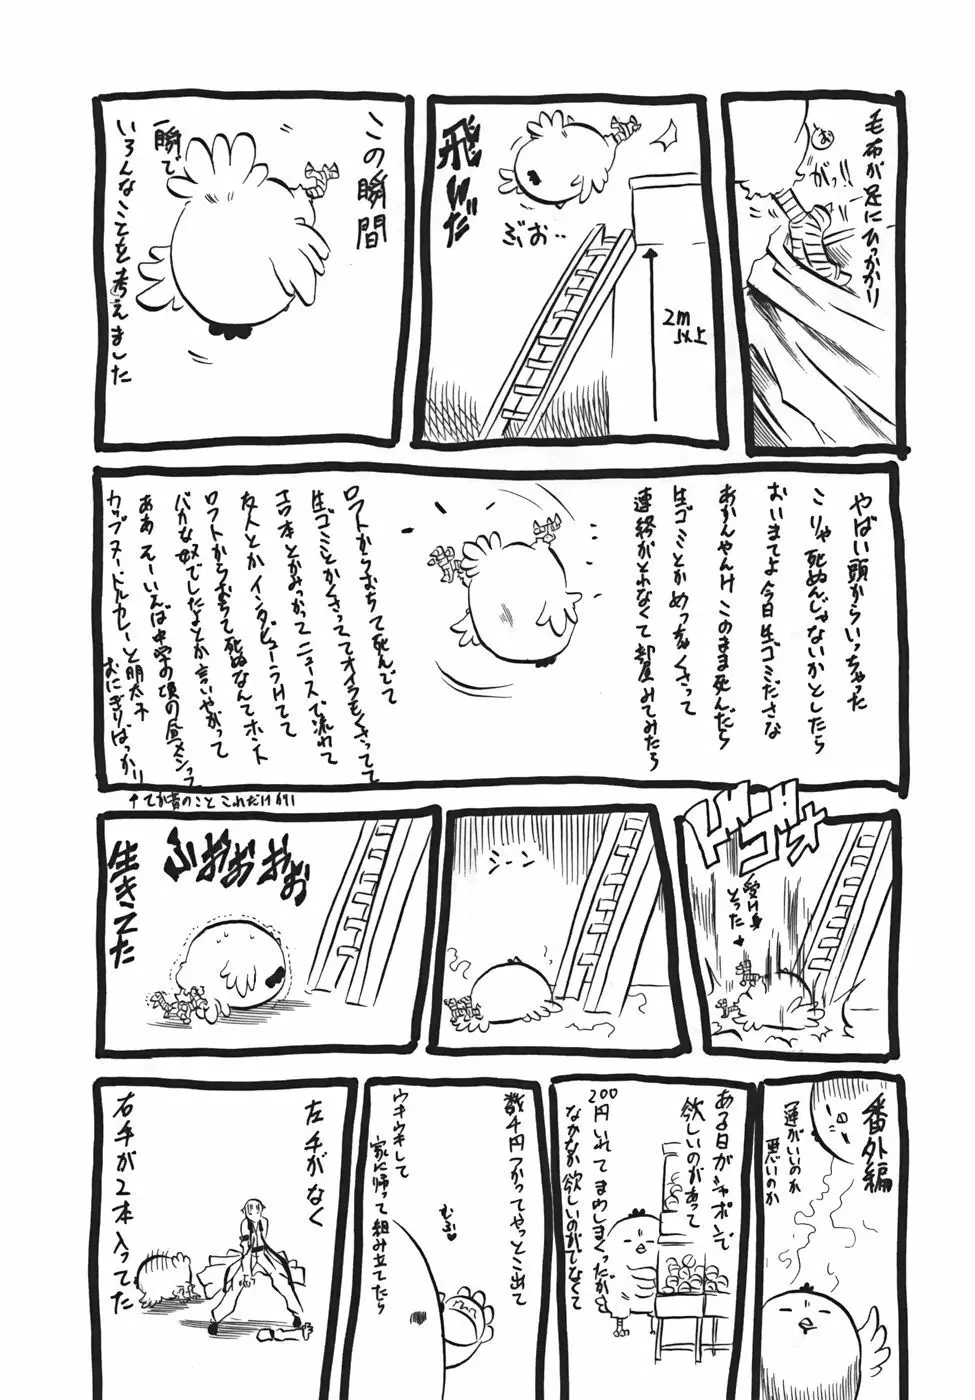 毛布が足にひっかかり
ぬ
がっ!!
飛んだ
ぶお‥
2m以上
この瞬間
一瞬で
いろんなことを考えました
やばい頭からいっちゃった
こりゃ死ぬんじゃないかとしたら
おいまてよ今日生ゴミださな
あかんやんけこのまま死んだら
生ゴミとかめっちゃくさって
連絡がとれなくて部屋みてみたら
ロフトからおちて死んでて
生ゴミとかくさっててオイラもくさってて
エロ本とかみつかってニュースで流れて
友人とかインタビューうけてて
ロフトからおちて死ぬなんてホント
バカな奴でしたよとか言いやがって
ああ そーいえば中学の頃の昼メシって
カップヌードルカレーと明太子
おにぎりばっかり
↑てか昔のことこれだけかい
ドゴォ
受け身
とった
シーン
ふおおおお
生きてた
番外編
運がいいのか
悪いのか
ある日ガシャポンで
欲しいのがあって
200円いれてまわしまくったが
なかなか欲しいのがでなくて
数千円つかってやっとこ出て
ウキウキして
家に帰って組み立てたら
むふ♥
左手がなく
右手が2本入ってた